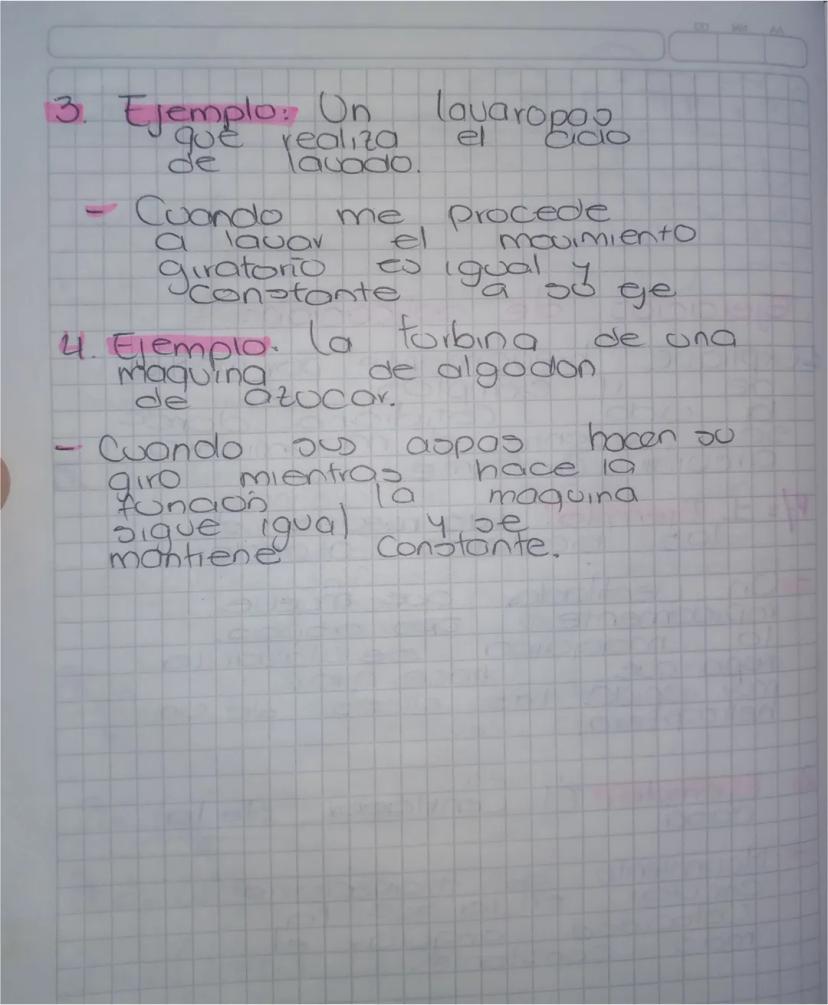 3. Ejemplo: Un lavaropas
que realiza el ciclo
de lavado.
- Cuando me procede
a lavar el movimiento
giratorio es igual y
constante a su eje
4. Ejemplo. la turbina de una
maquina de algodon
de azucar.
- Cuando sus aspas hacen su
giro mientras hace la
función la maquina
sigue igual y se
mantiene constante.